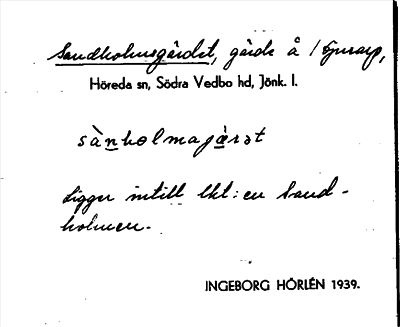 Sandholmsgärdet, gärde å 1 Bjurarp,
Höreda sn, Södra Vedbo hd, Jönk. l.
sànholmajæ̀rət
Ligger intill lkt: en Sand-
holmen.
INGEBORG HÖRLÉN 1939.